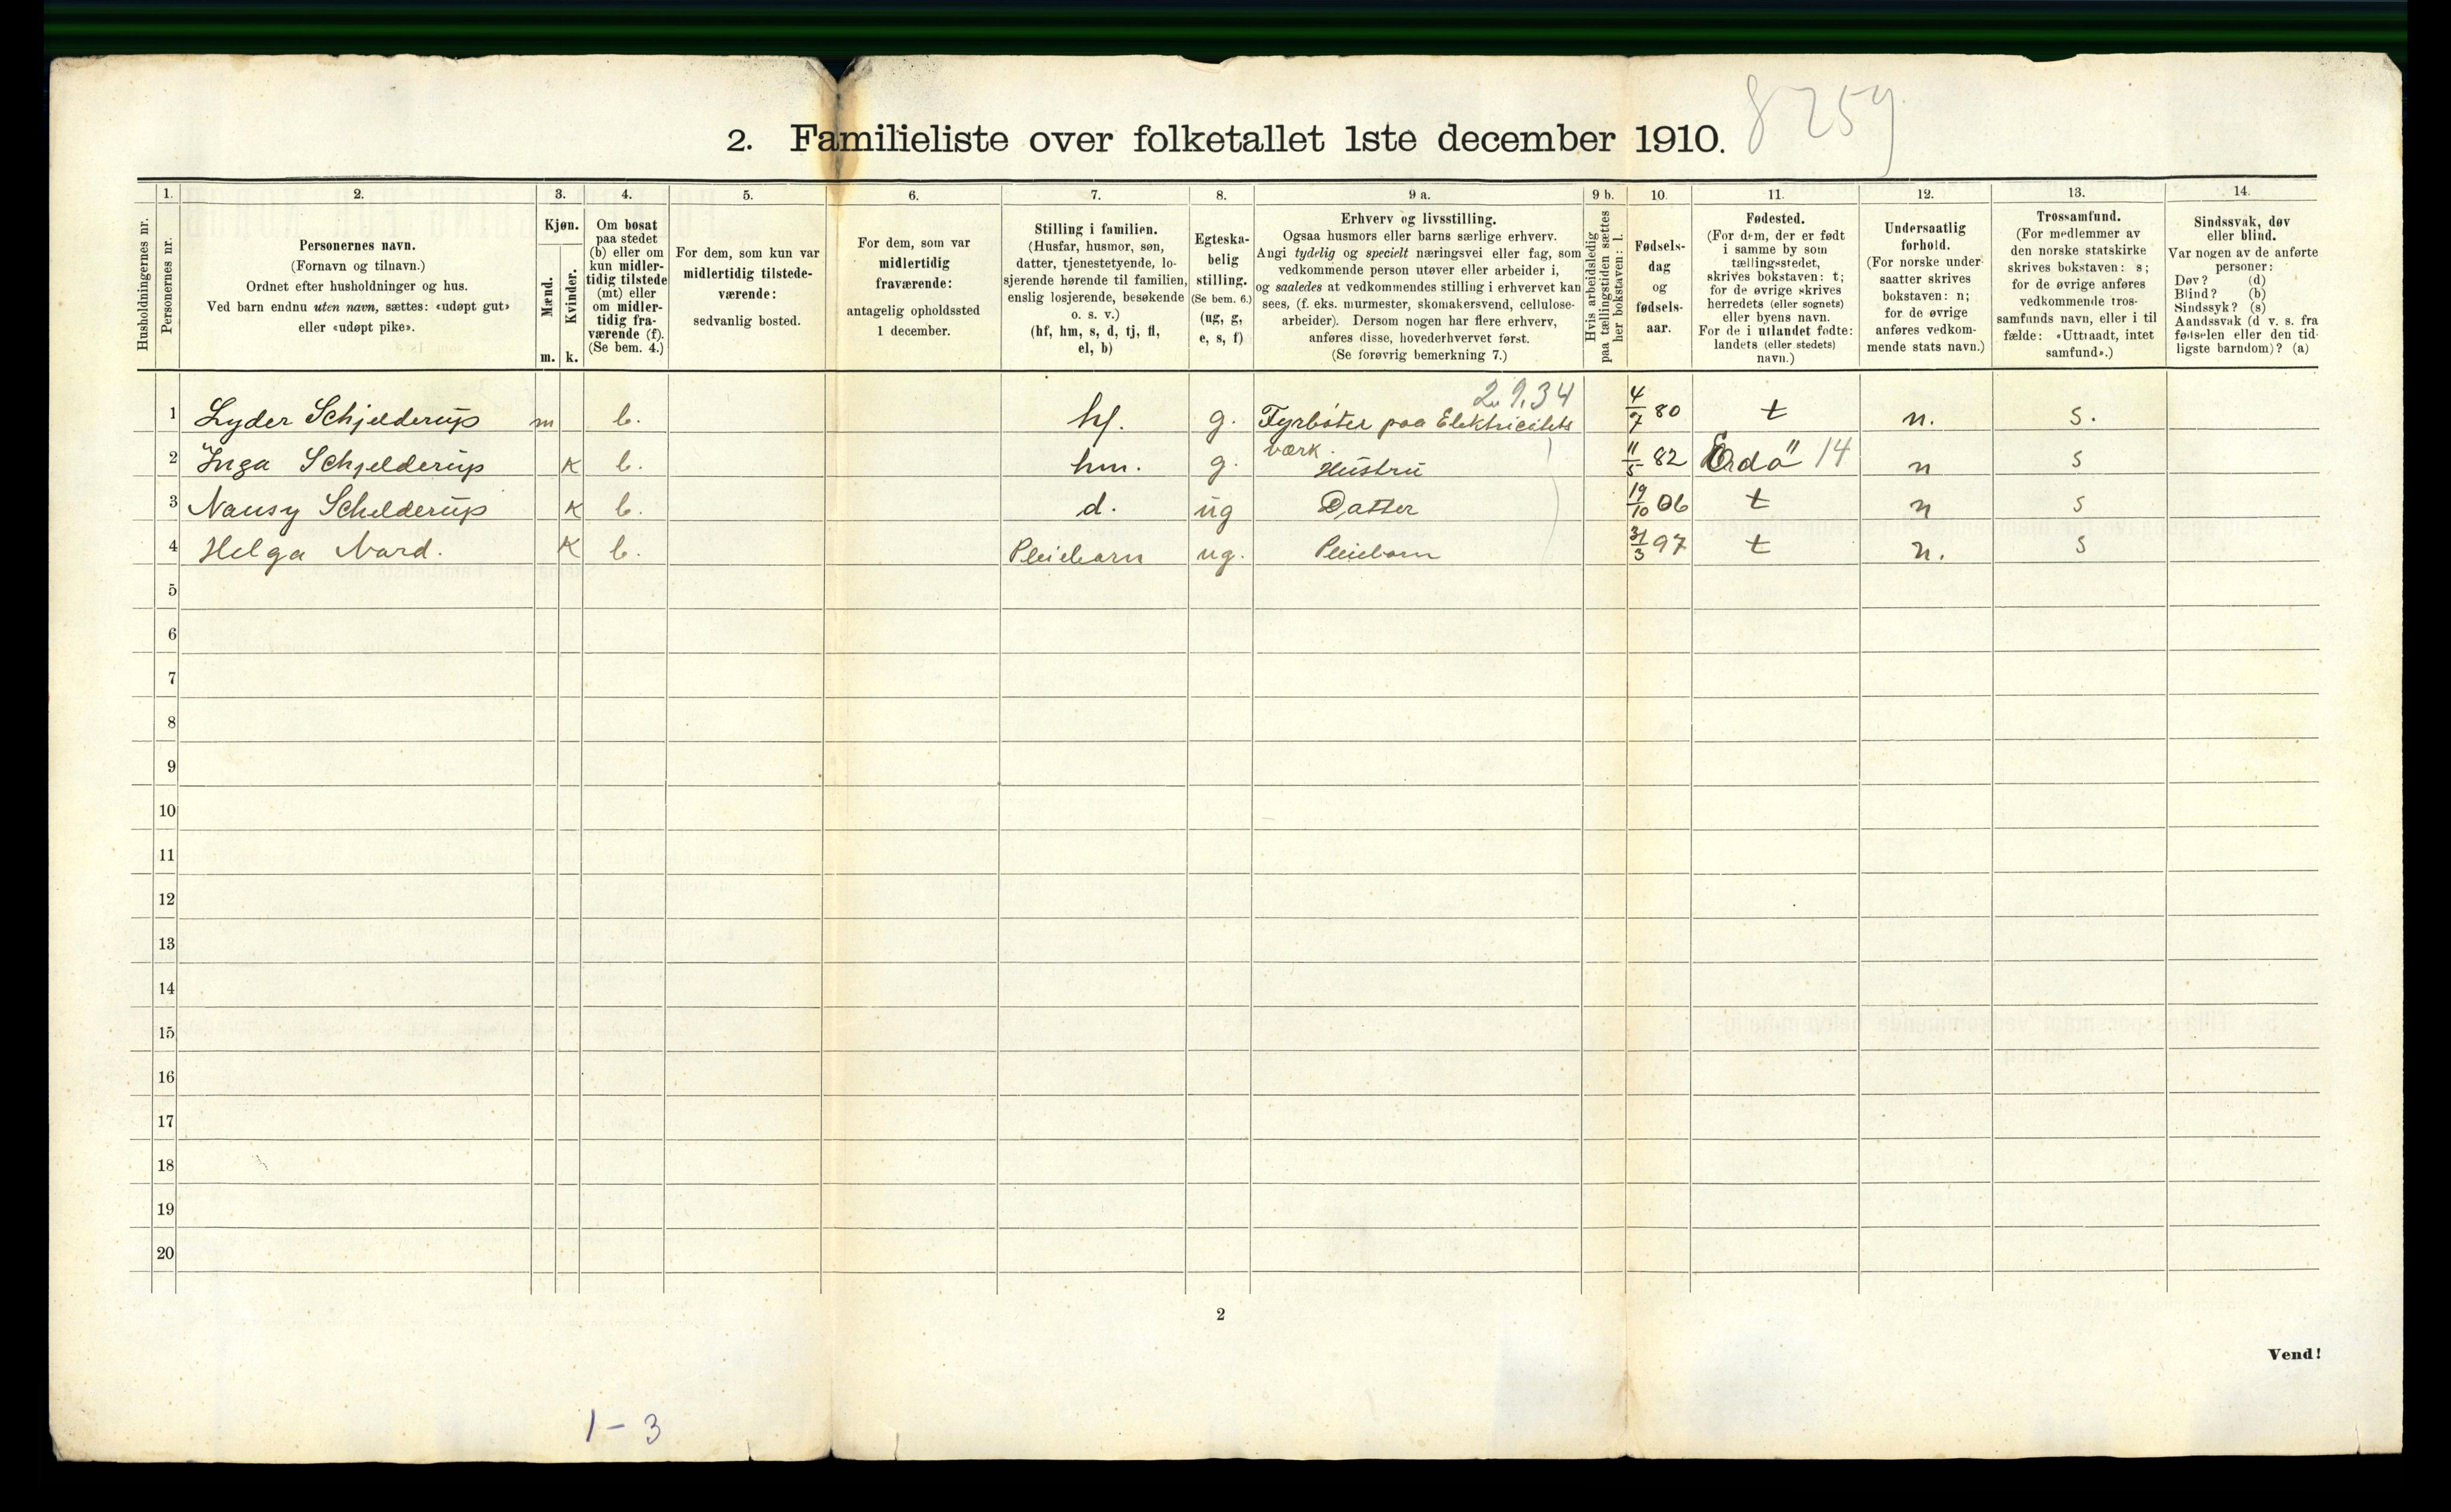 8259
2. Familieliste over folketallet 1ste december 1910.
Husholdningernes nr.
1.
Personernes nr.
2.
Personernes navn.
(Fornavn og tilnavn.)
Ordnet efter husholdninger og hus.
Ved barn endnu uten navn, sættes: «udøpt gut»
eller «udøpt pike».
3.
Kjøn.
Mænd.
Kvinder.
m. k.
4.
Om bosat
paa stedet
(b) eller om
kun midler-
tidig tilstede
(mt) eller
om midler-
tidig fra-
værende (f).
(Se bem. 4.)
5.
For dem, som kun var
midlertidig tilstede-
værende:
sedvanlig bosted.
6.
For dem, som var
midlertidig
fraværende:
antagelig opholdssted
1 december.
7.
Stilling i familien.
(Husfar, husmor, søn,
datter, tjenestetyende, lo-
sjerende hørende til familien,
enslig losjerende, besøkende
o. s. v.)
(hf, hm, s, d, tj, fl,
el, b)
8.
Egteska-
belig
stilling.
(Se bem. 6.)
(ug, g,
e, s, f)
9 a.
Erhverv og livsstilling.
Ogsaa husmors eller barns særlige erhverv.
Angi tydelig og specielt næringsvei eller fag, som
vedkommende person utøver eller arbeider i,
og saaledes at vedkommendes stilling i erhvervet kan
sees, (f. eks. murmester, skomakersvend, cellulose-
arbeider). Dersom nogen har flere erhverv,
anføres disse, hovederhvervet først.
(Se forøvrig bemerkning 7.)
9 b.
Hvis arbeidsledig
paa tællingstiden sættes
her bokstaven: l.
10.
Fødsels-
dag
og
fødsels-
aar.
11.
Fødested.
(For dem, der er født
i samme by som
tællingsstedet,
skrives bokstaven: t;
for de øvrige skrives
herredets (eller sognets)
eller byens navn.
For de i utlandet fødte:
landets (eller stedets)
navn.)
12.
Undersaatlig
forhold.
(For norske under-
saatter skrives
bokstaven: n;
for de øvrige
anføres vedkom-
mende stats navn.)
13.
Trossamfund.
(For medlemmer av
den norske statskirke
skrives bokstaven: s;
for de øvrige anføres
vedkommende tros-
samfunds navn, eller i til-
fælde: «Uttraadt, intet
samfund».)
14.
Sindssvak, døv
eller blind.
Var nogen av de anførte
personer:
Døv? (d)
Blind? (b)
Sindssyk? (s)
Aandssvak (d v. s. fra
fødselen eller den tid-
ligste barndom)? (a)
2.9.34
1 Lyder Schjelderup m b. hf. g. Fyrbøter paa Elektricitets 4/7 80 t n. s.
værk.
2 Inga Schjelderup k b. hm. g. Hustru 11/5 82 14 n s
3 Nansy Schelderup k b. d. ug Datter 19/10 06 t n s
4 Helga Nord. k b. Pleiebarn ug. Pleiebarn 31/3 97 t n. s
5
6
7
8
9
10
11
12
13
14
15
16
17
18
19
20
2
Vend!
1-3